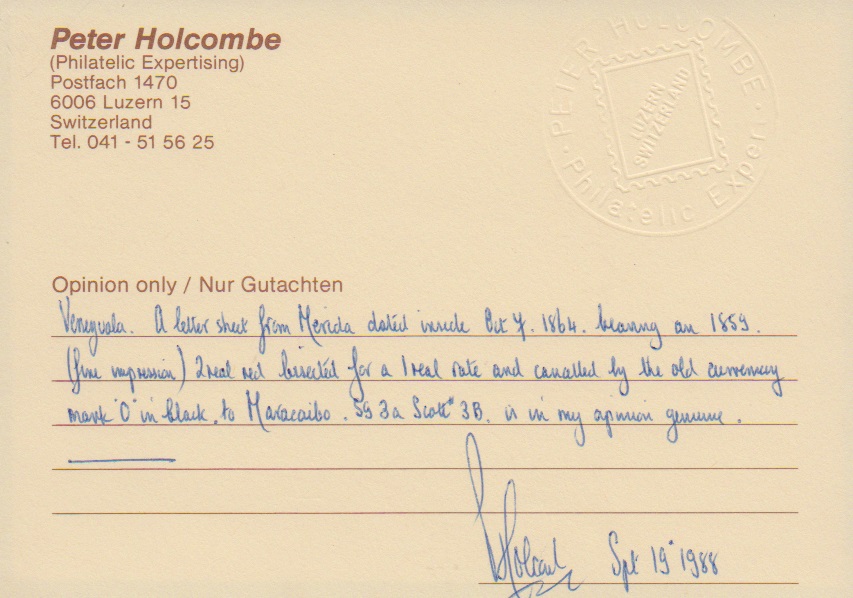 Peter Holcombe
(Philatelic Expertising)
Postfach 1470
6006 Luzern 15
Switzerland
Tel. 041 - 51 56 25
PETER HOLCOMBE
LUZERN
SWITZERLAND
Philatelic Exper
Opinion only / Nur Gutachten
Venezuala. A letter sheet from Merida dated inside Oct 7. 1864. bearing an 1859.
(fine impression) 2real red bisected for a 1real rate and cancelled by the old currency
mark "0" in black. to Maracaibo. SG 3a Scott 3B. is in my opinion genuine.
Holcombe Spt 19 1988